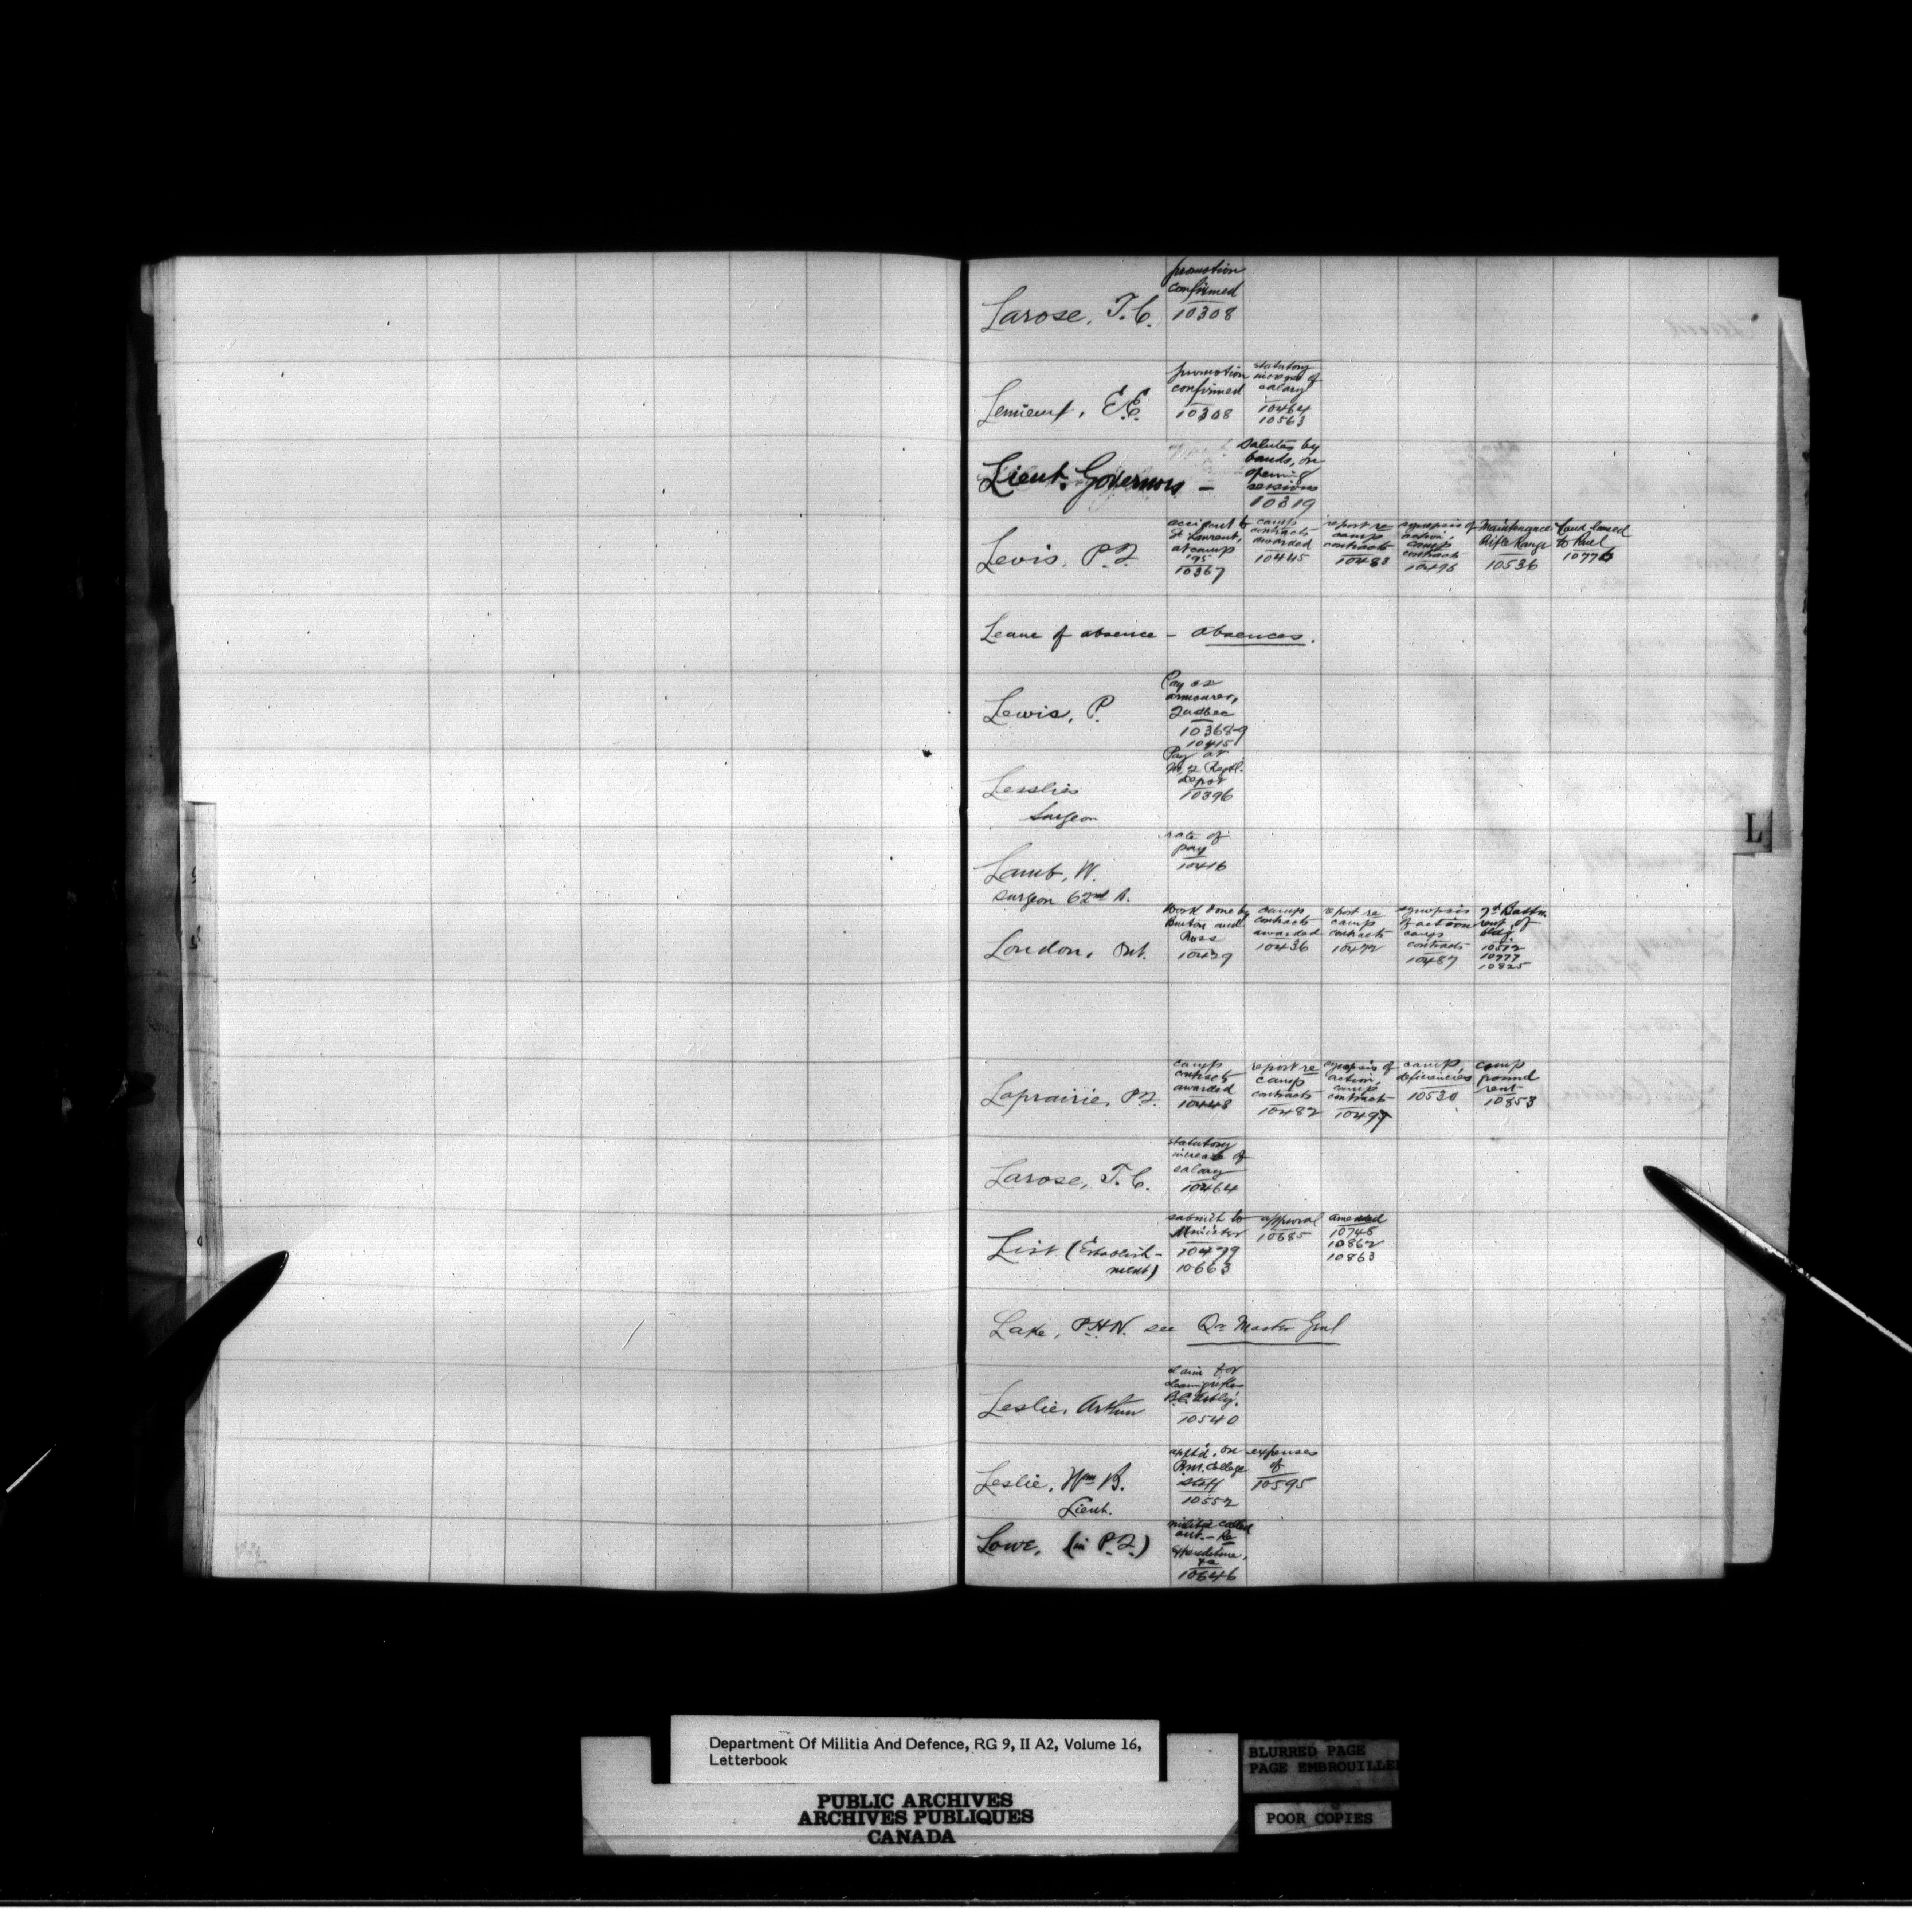 promotion
confirmed
Larose, T. C. 10308
promotion
confirmed
10308
statutory
increase of
salary
10464
10563
Lemieux, E. E.
Lieut. Governors –
salutes by
bands, on
opening
sessions
10319
Levis, P.Q.
accident to
St Laurent,
at camp
'95
10367
camp
contracts
awarded
10445
report re
camp
contracts
10483
synopsis of
action,
camp
contracts
10498
Maintenance
Rifle Range
10536
land leased
to
10776
Leave of absence – absences.
Lewis, P.
Pay as
armourer,
Quebec
10368-9
10415
Lesslie
Surgeon
Pay at
No. 2 Regtl.
depot
10396
Lamb, W.
surgeon 62nd B.
rate of
pay
10416
London, Ont.
Work done by
Burton and
Ross
10429
camp
contracts
awarded
10436
report re
camp
contracts
10472
synopsis
of action
camp
contracts
10487
7th Battn.
rent of
bldg.
10572
10777
10825
Laprairie, P.Q.
camp
contracts
awarded
10448
report re
camp
contracts
10482
synopsis of
action,
camp
contracts
10497
camp
deficiencies
10530
camp
ground
rent
10853
Larose, T. C.
statutory
increase of
salary
10464
List (Establish-
ment)
submit to
Minister
10479
10663
approval
10685
amended
10748
10862
10863
Lake, P.H.N. see Qr Master Genl
Leslie, Arthur
claim for
cleaning rifles
B.C.
10540
Leslie, Wm B.
Lieut.
aptd. on
Rml. College
staff
10552
expenses
of
10595
Lowe, (in P.Q.)
militia called
out. – Re
expenditure,
&c
10646
L
Department Of Militia And Defence, RG 9, II A2, Volume 16,
Letterbook
PUBLIC ARCHIVES
ARCHIVES PUBLIQUES
CANADA
BLURRED PAGE
PAGE EMBROUILLEE
POOR COPIES